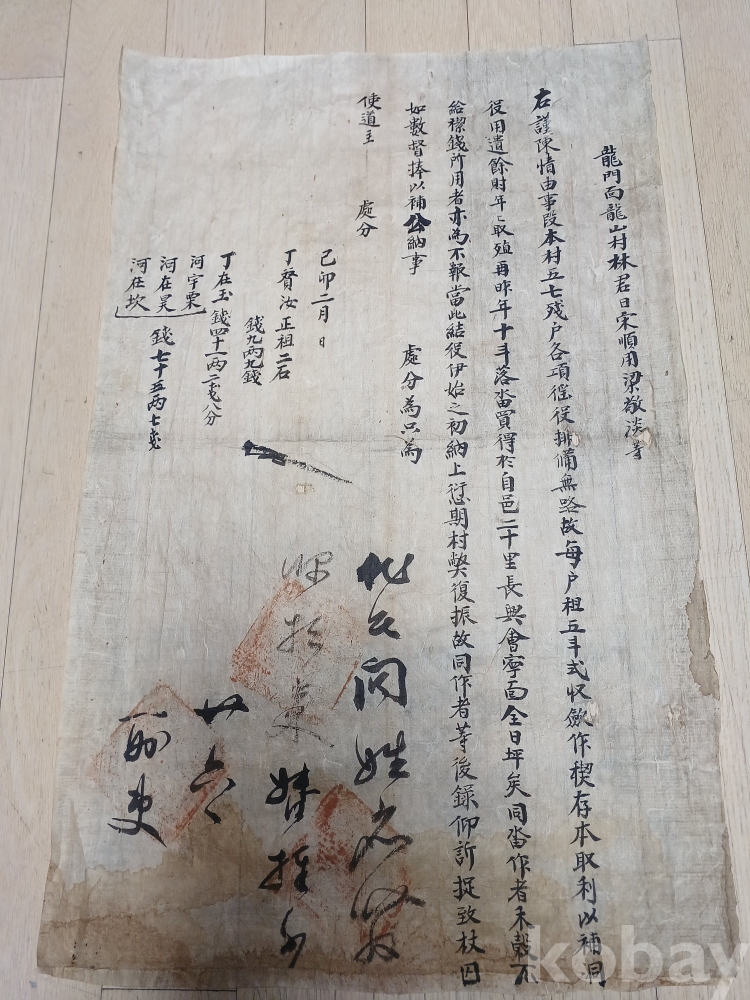 龍門面龍山村林君日宋順用梁敬淡等
右謹陳情由事段本村五七残戶各項徭役排備無路故每戶租五斗式收斂作稧存本取利以補洞
役用遺餘財年〻取殖再昨年十斗落畓買得於自邑二十里長興會寧面全日坪矣同畓作者禾穀不
給稧錢所用者亦為不報當此結役伊始之初納上愆期村弊復振故同作者等後錄仰訴捉致杖囚
如數督捧以補公納事
處分為只為
使道主 處分
己卯二月 日
丁賛汝正租二石
錢九兩九錢
丁在玉錢四十一兩二戔八分
河宇栗
河在昊 錢七十五兩七戔
河在坎
此文同姓名
推
廿六
刑吏
kobay